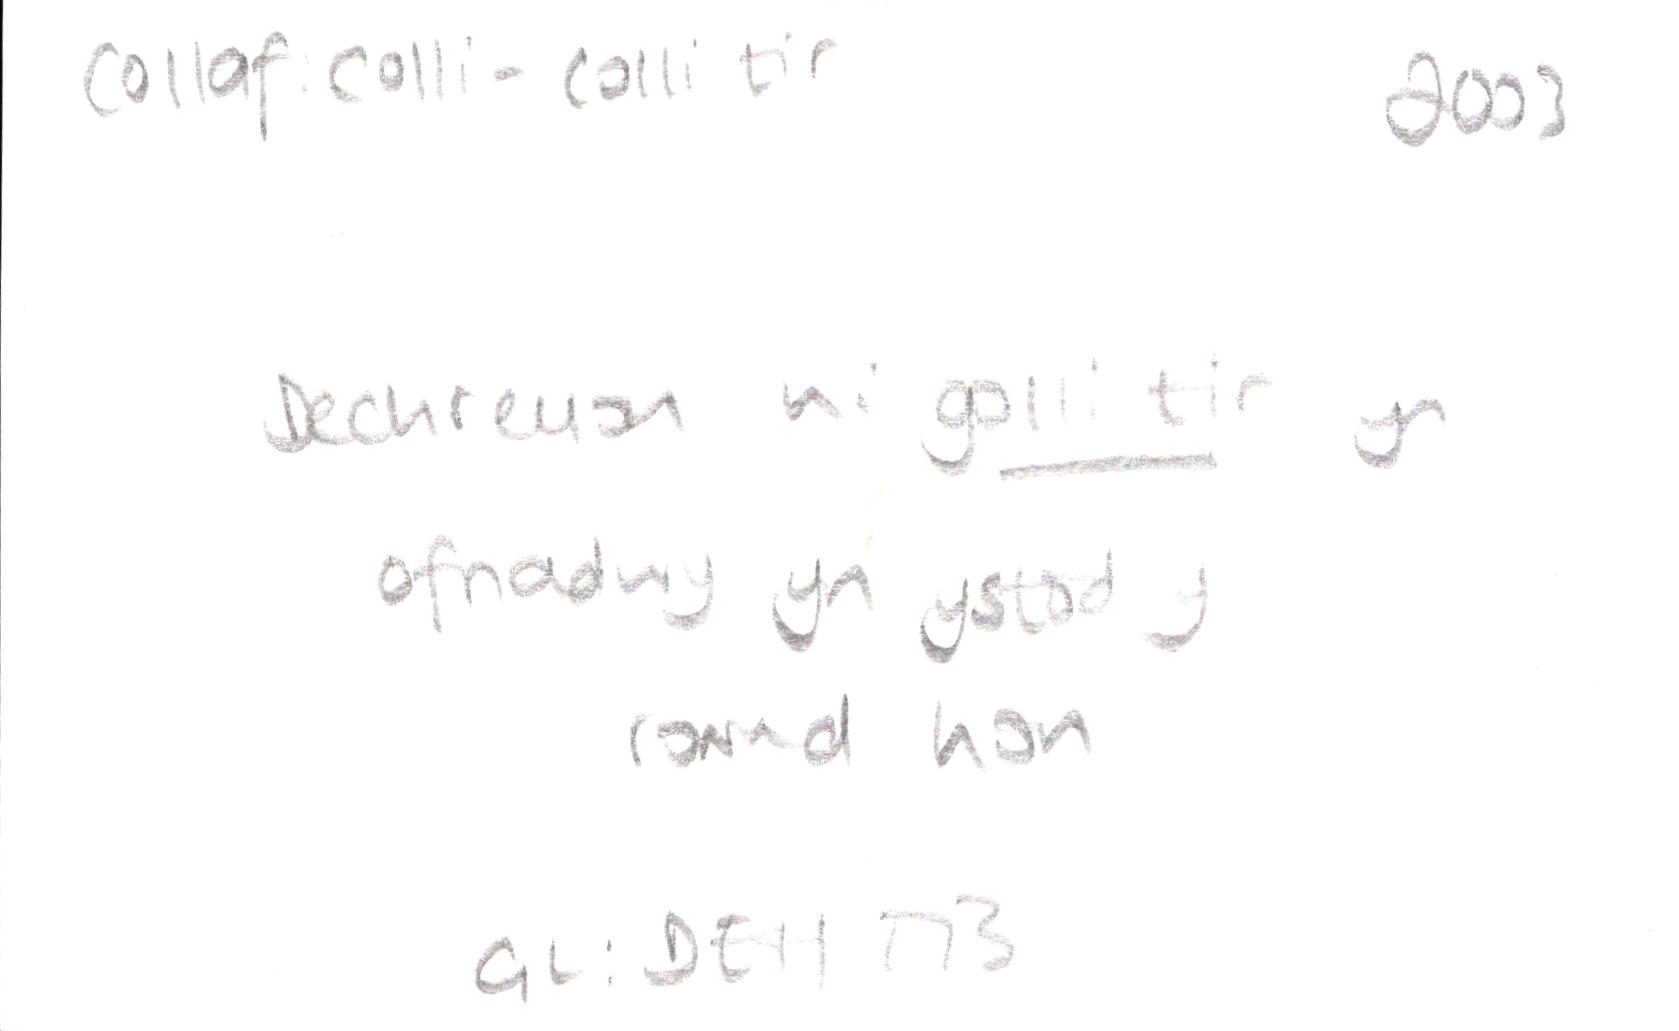 Collaf: colli - colli tir 2003
Dechreuson ni golli tir yn
ofnadwy yn ystod y
rownd hon
GL: DEH 773